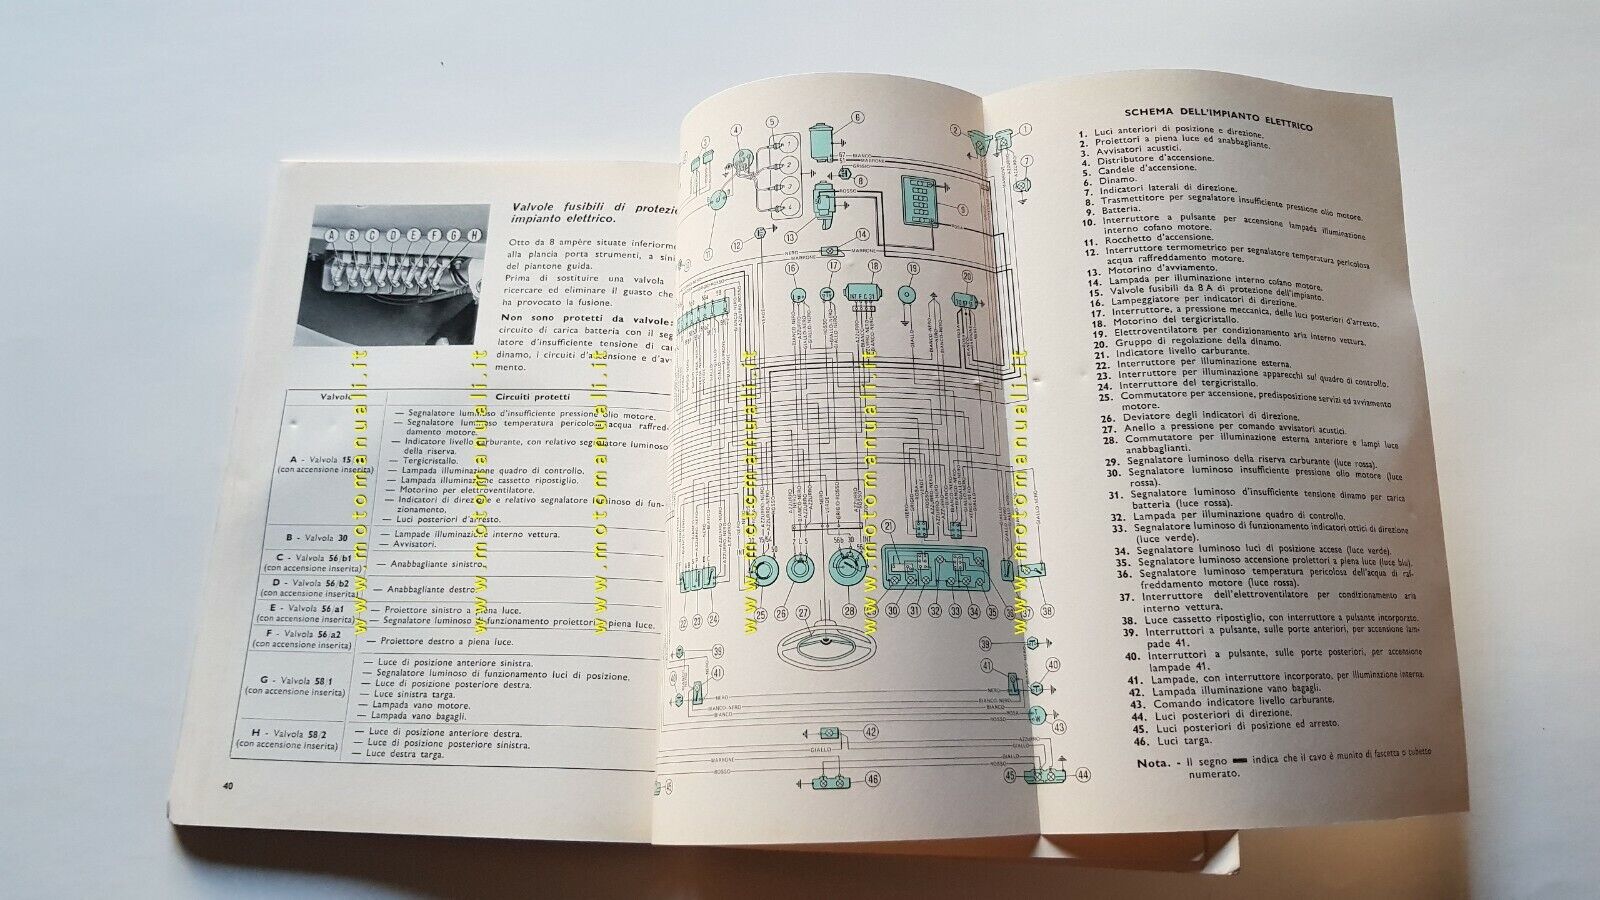 Valvole fusibili di protezi
impianto elettrico.
Otto da 8 ampère situate inferiorme
alla plancia porta strumenti, a sini
del piantone guida.
Prima di sostituire una valvola
ricercare ed eliminare il guasto che
ha provocato la fusione.
Non sono protetti da valvole:
circuito di carica batteria con il seg
latore d'insufficiente tensione di
dinamo, i circuiti d'accensione e d'av
mento.
A B C D E F G H
Valvole
Circuiti protetti
A - Valvola 15
(con accensione inserita)
— Segnalatore luminoso d'insufficiente pressione olio motore.
— Segnalatore luminoso temperatura pericolosa acqua raffred-
damento motore.
— Indicatore livello carburante, con relativo segnalatore luminoso
della riserva.
— Tergicristallo.
— Lampada illuminazione quadro di controllo.
— Lampada illuminazione cassetto ripostiglio.
— Motorino per elettroventilatore.
— Indicatori di direzione e relativo segnalatore luminoso di fun-
zionamento.
— Luci posteriori d'arresto.
B - Valvola 30
— Lampade illuminazione interno vettura.
— Avvisatori.
C - Valvola 56/b1
(con accensione inserita)
— Anabbagliante sinistro.
D - Valvola 56/b2
(con accensione inserita)
— Anabbagliante destro.
E - Valvola 56/a1
(con accensione inserita)
— Proiettore sinistro a piena luce.
— Segnalatore luminoso funzionamento proiettori a piena luce.
F - Valvola 56/a2
(con accensione inserita)
— Proiettore destro a piena luce.
G - Valvola 58/1
(con accensione inserita)
— Luce di posizione anteriore sinistra.
— Segnalatore luminoso di funzionamento luci di posizione.
— Luce di posizione posteriore destra.
— Luce sinistra targa.
— Lampada vano motore.
— Lampada vano bagagli.
H - Valvola 58/2
(con accensione inserita)
— Luce di posizione anteriore destra.
— Luce di posizione posteriore sinistra.
— Luce destra targa.
40
www.motomanuali.it
www.motomanuali.it
www.motomanuali.it
www.motomanuali.it
www.motomanuali.it
www.motomanuali.it
4 5 6 2 1
1
2
3
4
67 BIANCO
51 MARRONE
GRIGIO
7
8
ROSSO
9
ROSA
11 12 13 14
NERO
MARRONE
MARRONE
16 17 18 19 20
INT F C 31
15/54 30 50
7 L 5
56b 30
INT
21
22 23 24 25 26 27 28 30 31 32 33 34 35 37 38
39 39
41 41 40
NERO
NERO
BIANCO-NERO
BIANCO-NERO
BIANCO
BIANCO
ROSA
ROSSO
ROSSO
42 43
GIALLO
GIALLO
AZZURRO
MARRONE
ROSSO
ROSSO
45 46 45 44
SCHEMA DELL'IMPIANTO ELETTRICO
1. Luci anteriori di posizione e direzione.
2. Proiettori a piena luce ed anabbagliante.
3. Avvisatori acustici.
4. Distributore d'accensione.
5. Candele d'accensione.
6. Dinamo.
7. Indicatori laterali di direzione.
8. Trasmettitore per segnalatore insufficiente pressione olio motore.
9. Batteria.
10. Interruttore a pulsante per accensione lampada illuminazione
interno cofano motore.
11. Rocchetto d'accensione.
12. Interruttore termometrico per segnalatore temperatura pericolosa
acqua raffreddamento motore.
13. Motorino d'avviamento.
14. Lampada per illuminazione interno cofano motore.
15. Valvole fusibili da 8 A di protezione dell'impianto.
16. Lampeggiatore per indicatori di direzione.
17. Interruttore, a pressione meccanica, delle luci posteriori d'arresto.
18. Motorino del tergicristallo.
19. Elettroventilatore per condizionamento aria interno vettura.
20. Gruppo di regolazione della dinamo.
21. Indicatore livello carburante.
22. Interruttore per illuminazione esterna.
23. Interruttore per illuminazione apparecchi sul quadro di controllo.
24. Interruttore del tergicristallo.
25. Commutatore per accensione, predisposizione servizi ed avviamento
motore.
26. Deviatore degli indicatori di direzione.
27. Anello a pressione per comando avvisatori acustici.
28. Commutatore per illuminazione esterna anteriore e lampi luce
anabbaglianti.
29. Segnalatore luminoso della riserva carburante (luce rossa).
30. Segnalatore luminoso insufficiente pressione olio motore (luce
rossa).
31. Segnalatore luminoso d'insufficiente tensione dinamo per carica
batteria (luce rossa).
32. Lampada per illuminazione quadro di controllo.
33. Segnalatore luminoso di funzionamento indicatori ottici di direzione
(luce verde).
34. Segnalatore luminoso luci di posizione accese (luce verde).
35. Segnalatore luminoso accensione proiettori a piena luce (luce blu).
36. Segnalatore luminoso temperatura pericolosa dell'acqua di raf-
freddamento motore (luce rossa).
37. Interruttore dell'elettroventilatore per condizionamento aria
interno vettura.
38. Luce cassetto ripostiglio, con interruttore a pulsante incorporato.
39. Interruttori a pulsante, sulle porte anteriori, per accensione lam-
pade 41.
40. Interruttori a pulsante, sulle porte posteriori, per accensione
lampade 41.
41. Lampade, con interruttore incorporato, per illuminazione interna.
42. Lampada illuminazione vano bagagli.
43. Comando indicatore livello carburante.
44. Luci posteriori di direzione.
45. Luci posteriori di posizione ed arresto.
46. Luci targa.
Nota. - Il segno indica che il cavo è munito di fascetta o tubetto
numerato.